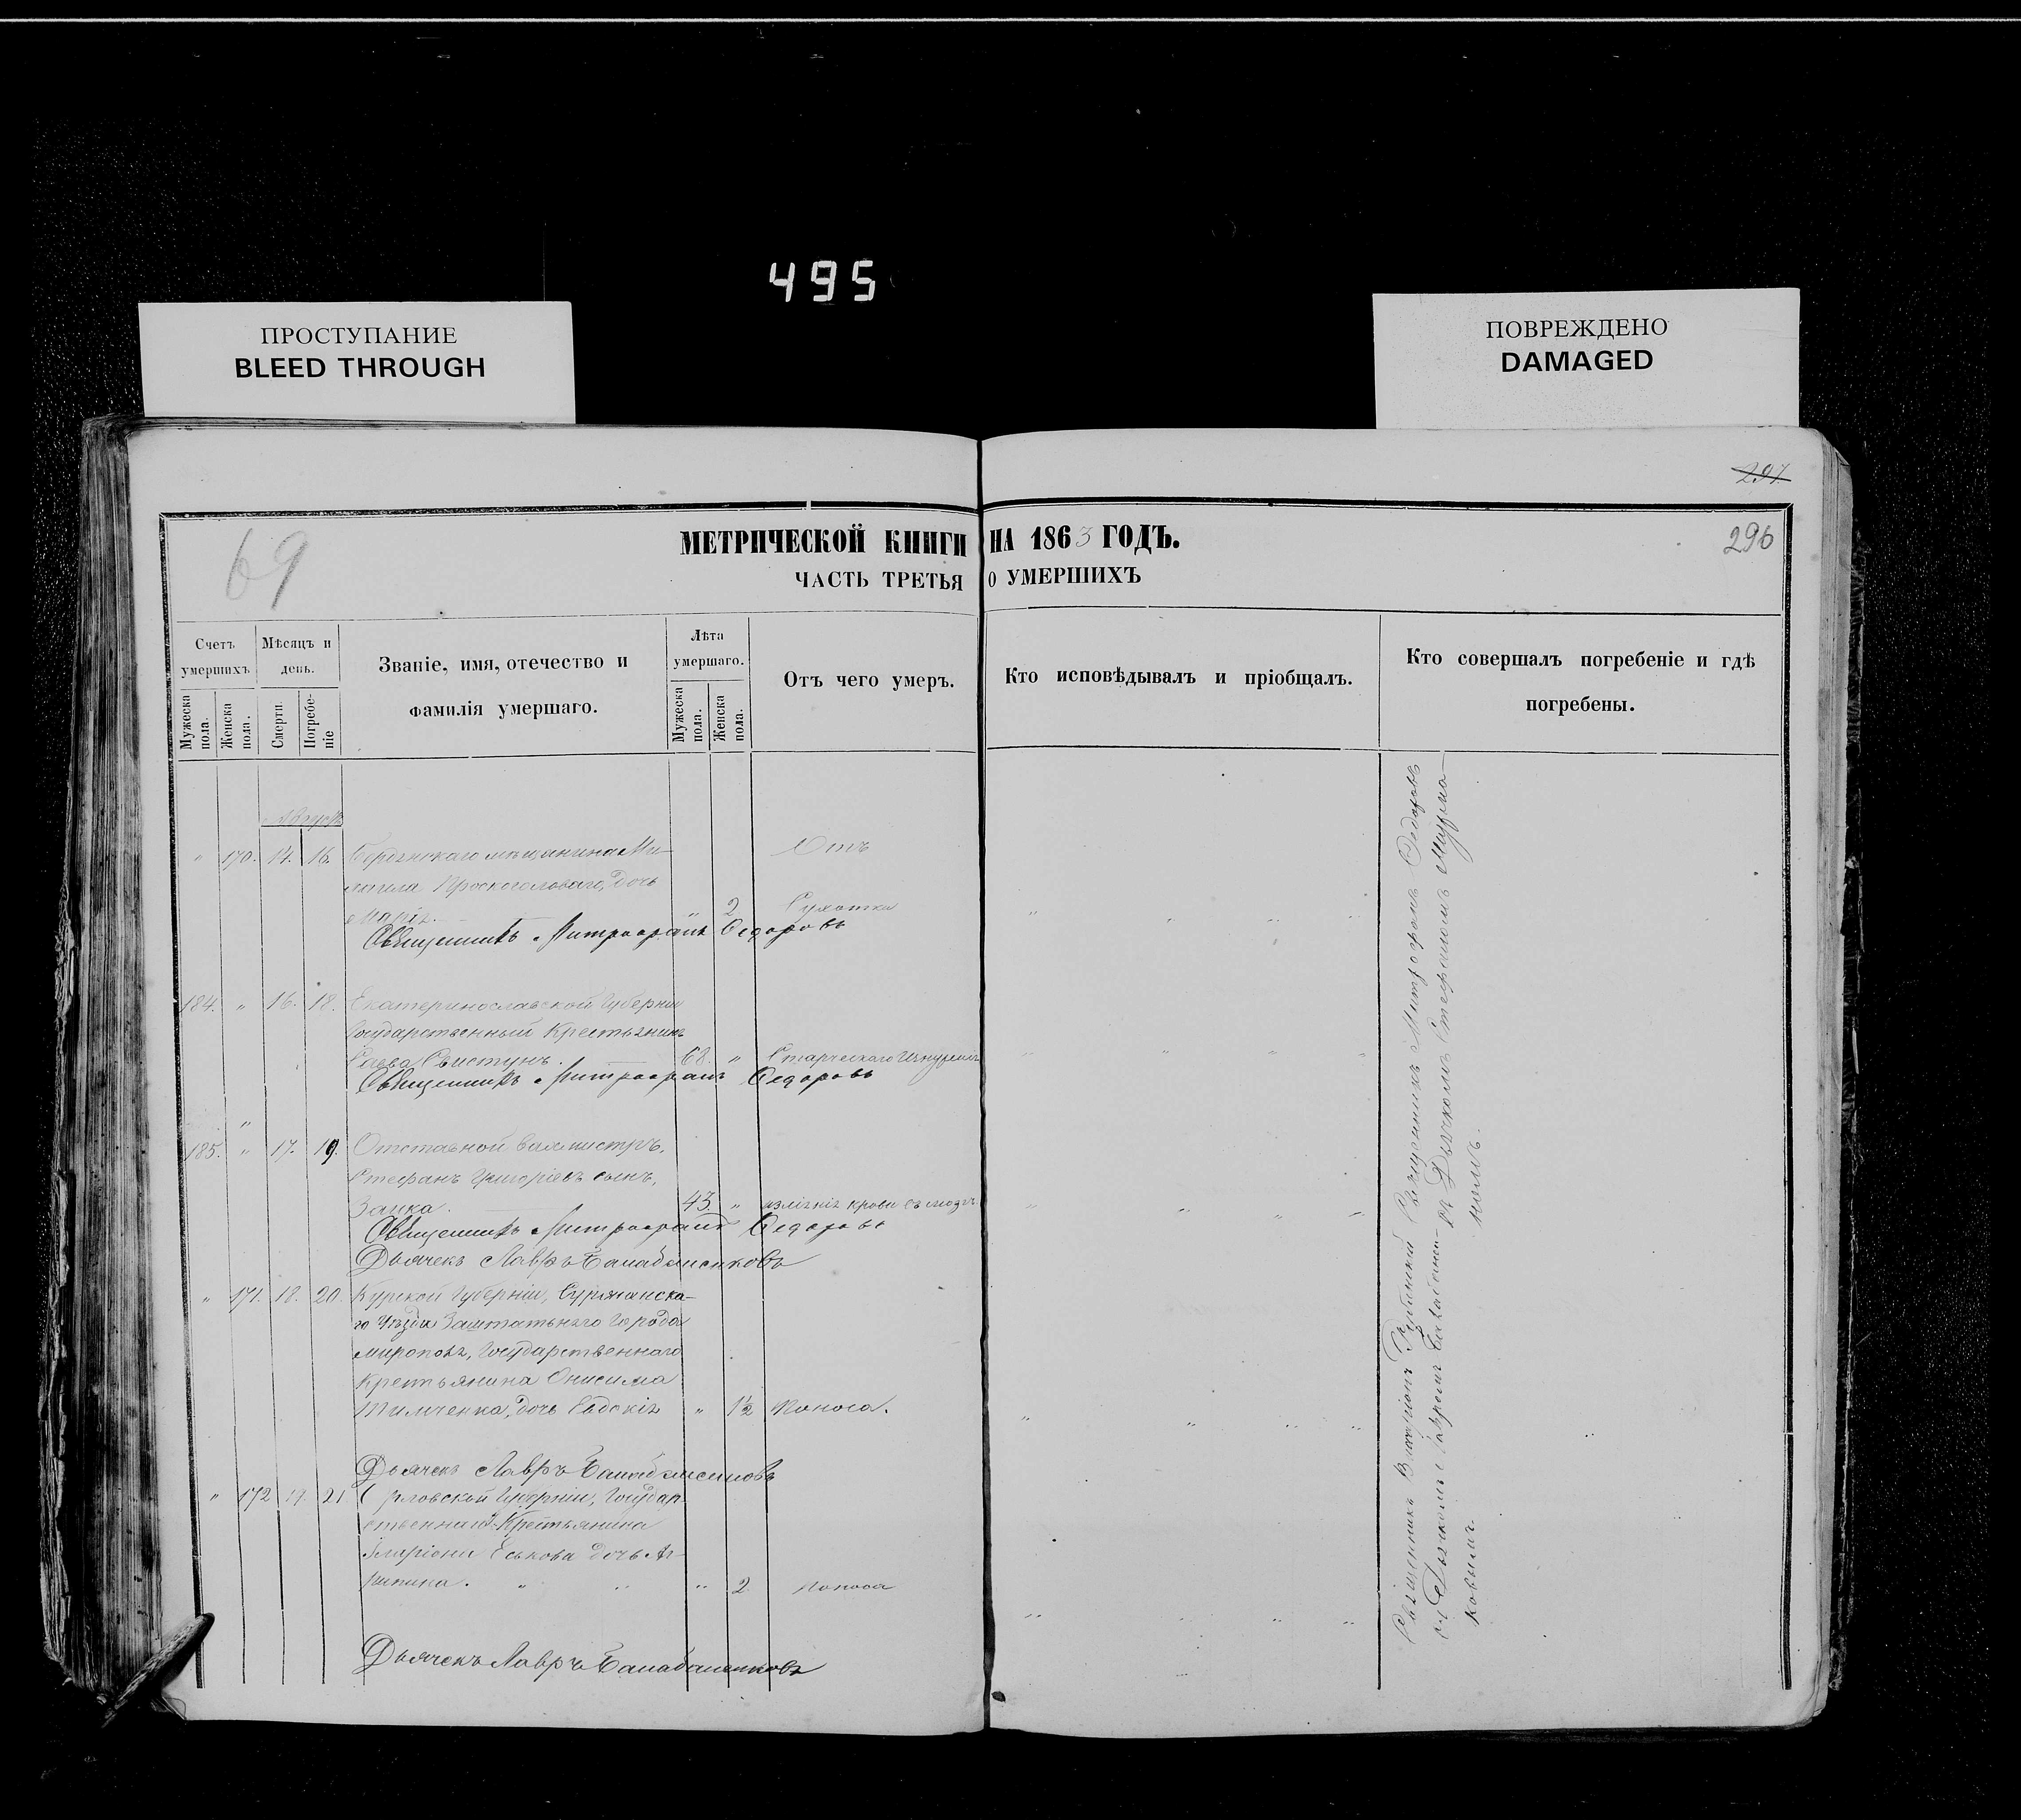 495
ПРОСТУПАНИЕ
BLEED THROUGH
ПОВРЕЖДЕНО
DAMAGED
297
69
МЕТРИЧЕСКОЙ КНИГИ НА 1863 ГОДЪ.
296
ЧАСТЬ ТРЕТЬЯ О УМЕРШИХЪ
Счетъ умершихъ
Мѣсяцъ и день.
Званіе, имя, отечество и фамилія умершаго.
Лѣта умершаго.
Отъ чего умеръ.
Кто исповѣдывалъ и пріобщалъ.
Кто совершалъ погребеніе и гдѣ погребены.
Мужеска пола.
Женска пола.
Смерти.
Погребеніе
Мужеска пола.
Женска пола.
Августъ
" 170. 14. 16. мѣщанина Ми- Отъ
хаила дочь
Марія. " 2 Сухотки
Священникъ Митрофанъ Федоровъ
184. " 16. 18. Екатеринославской Губерніи
Государственный Крестьянинъ
Савва Свистунъ. 68. " Старческаго Изнуренія
Священникъ Митрофанъ Федоровъ
185. " 17. 19. Отставной
Стефанъ Григоріевъ сынъ,
Заика. 43. " крови въ мозгъ.
Священникъ Митрофанъ Федоровъ
Дьячекъ Лавръ Балабаненковъ
" 171. 18. 20. Курской Губерніи, Суджанска-
го Уѣзда Заштатнаго Города
Мирополя, Государственнаго
Крестьянина Онисима
Тимченка, дочь Евдокія " 1½ Поноса.
Дьячекъ Лавръ Балабаненковъ
" 172 19. 21 Орловской Губерніи, Государ-
ственнаго Крестьянина
Иларіона Еськова дочь Аг-
рипина. " " " 2 Поноса
Дьячекъ Лавръ Балабаненковъ
Священникъ Иларіонъ
съ Дьячкомъ Лавремъ Балабанен-
ковымъ.
Священникъ Митрофанъ Федоровъ
съ Дьячкомъ Стефаномъ